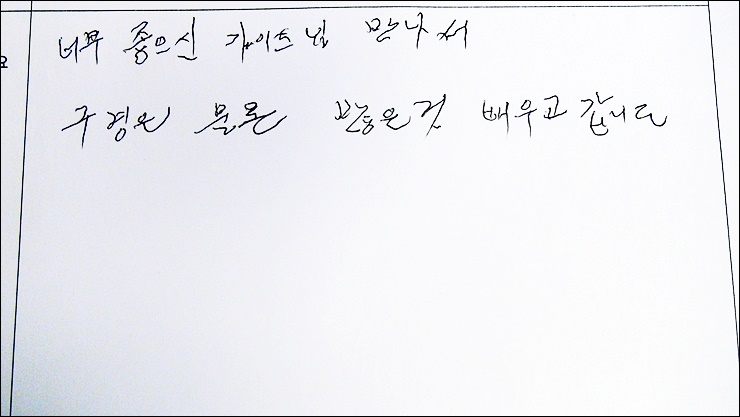 너무 좋으신 가이드님 만나서
구경은 물론 많은것 배우고 갑니다